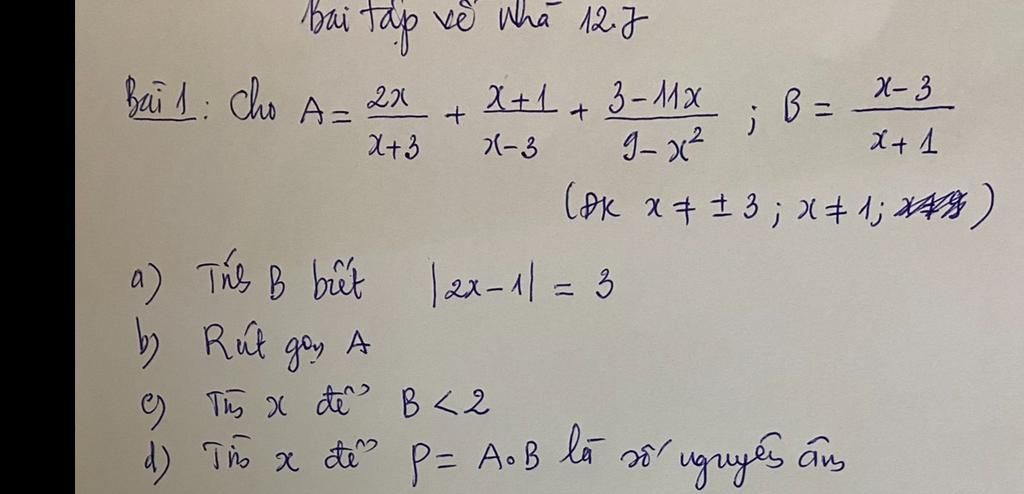 Bài tập về nhà 12.7
Bài 1: Cho A = 2x/(x+3) + (x+1)/(x-3) + (3-11x)/(9-x²) ; B = (x-3)/(x+1)
(ĐK x ≠ ±3 ; x ≠ 1;)
a) Tính B biết |2x-1| = 3
b) Rút gọn A
c) Tìm x để B < 2
d) Tìm x để P = A.B là số nguyên âm